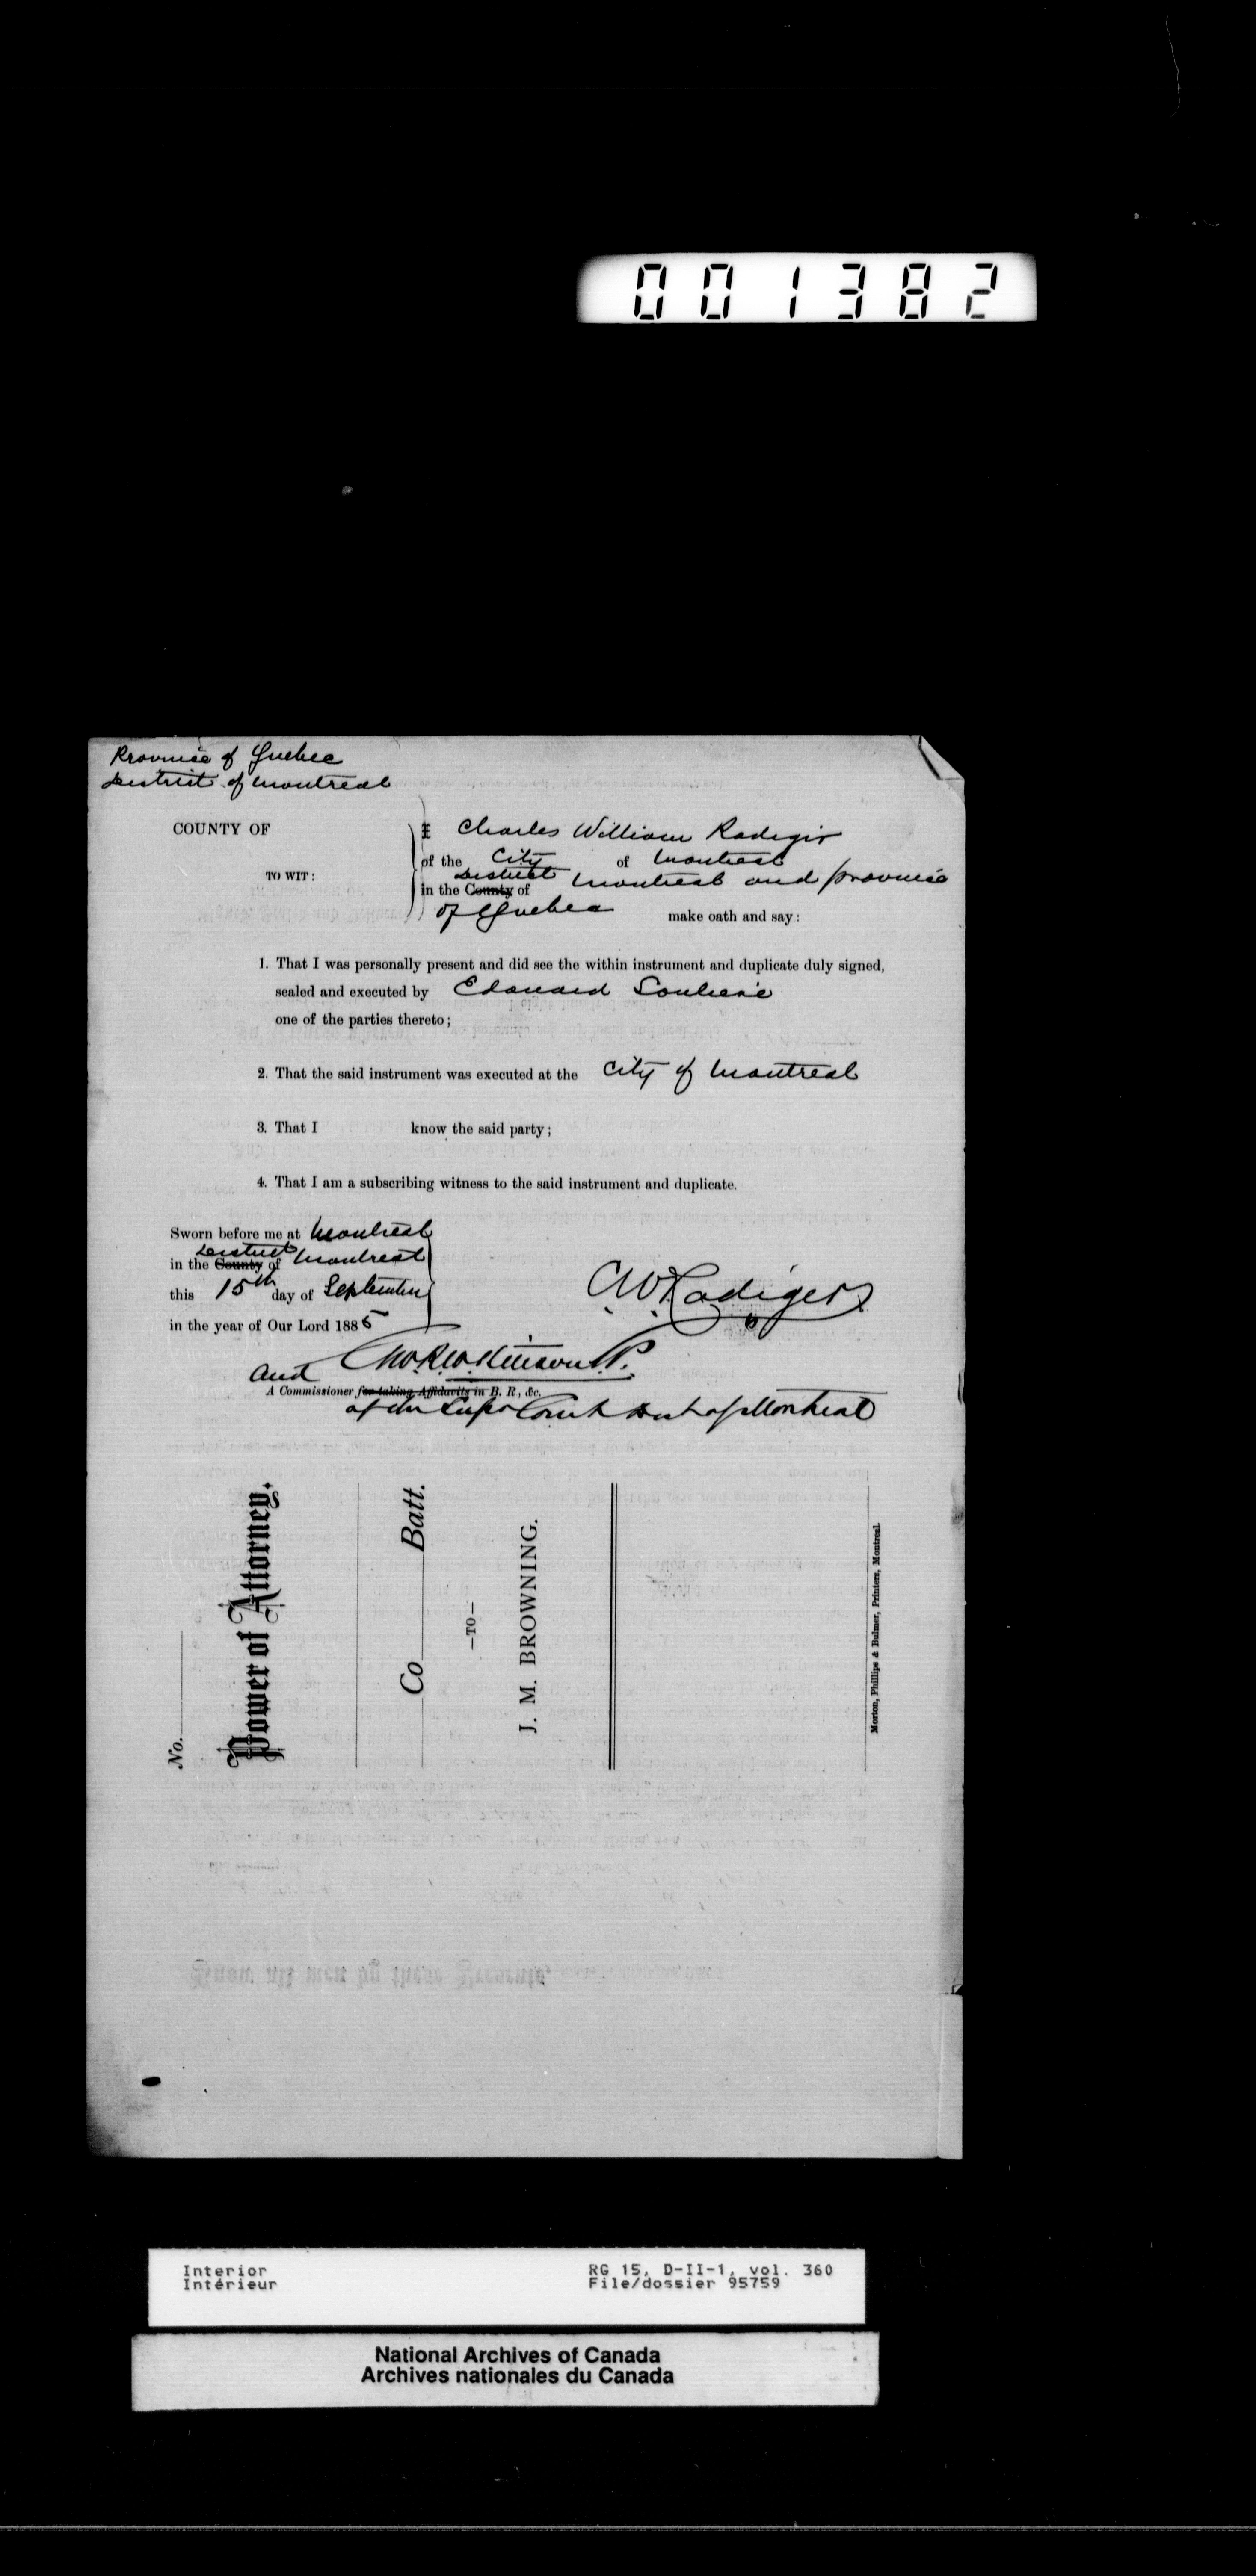 001382
Province of Quebec
District of Montreal
COUNTY OF
TO WIT:
I Charles William Radiger
of the City of Montreal
District
in the County of Montreal and province
of Quebec make oath and say:
1. That I was personally present and did see the within instrument and duplicate duly signed,
sealed and executed by Edouard Souliere
one of the parties thereto;
2. That the said instrument was executed at the City of Montreal
3. That I know the said party;
4. That I am a subscribing witness to the said instrument and duplicate.
Sworn before me at Montreal
District
in the County of Montreal
this 15th day of September
in the year of Our Lord 1885
C W Radiger
and
A Commissioner for taking Affidavits in B. R., &c.
of the Supr Court Dist of Montreal
No.
Power of Attorney.
Co Batt.
—TO—
J. M. BROWNING.
Morton, Phillips & Bulmer, Printers, Montreal.
Know all men by these Presents,
Interior
Intérieur
RG 15, D-II-1, vol. 360
File/dossier 95759
National Archives of Canada
Archives nationales du Canada